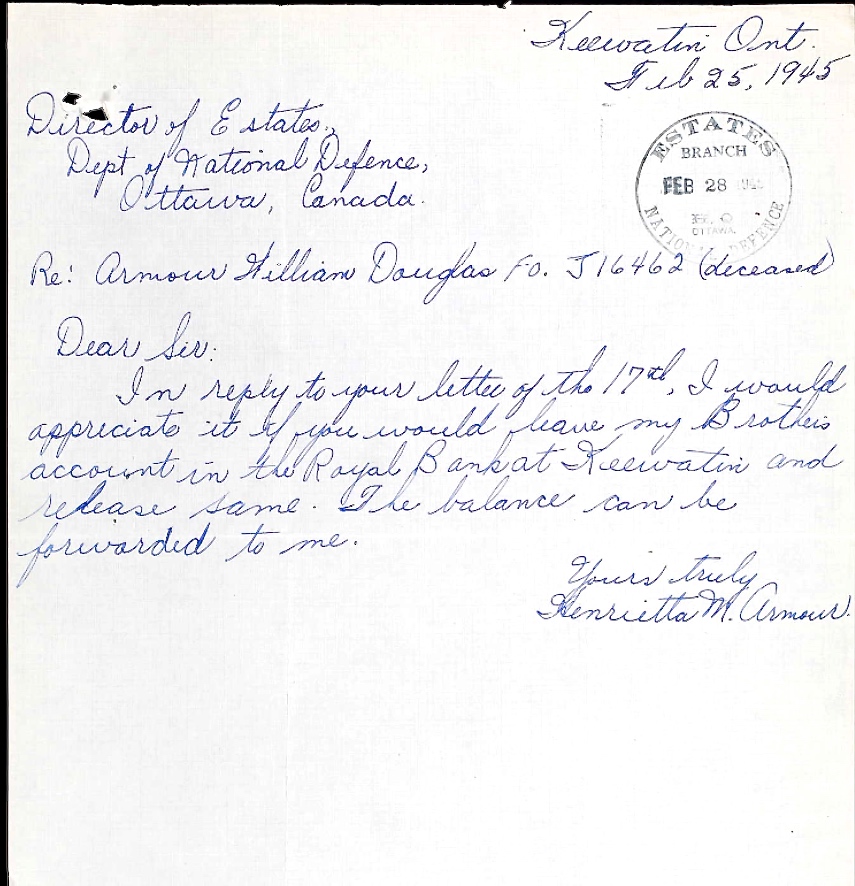 Keewatin Ont.
Feb 25, 1945
Director of Estates,
Dept of National Defence,
Ottawa, Canada.
ESTATES
BRANCH
FEB 28
H.Q
OTTAWA.
NATIONAL DEFENCE
Re: Armour William Douglas FO. J16462 (deceased)
Dear Sir:
In reply to your letter of the 17th, I would
appreciate it if you would leave my Brothers
account in the Royal Bank at Keewatin and
release same. The balance can be
forwarded to me.
Yours truly
Henrietta M. Armour.